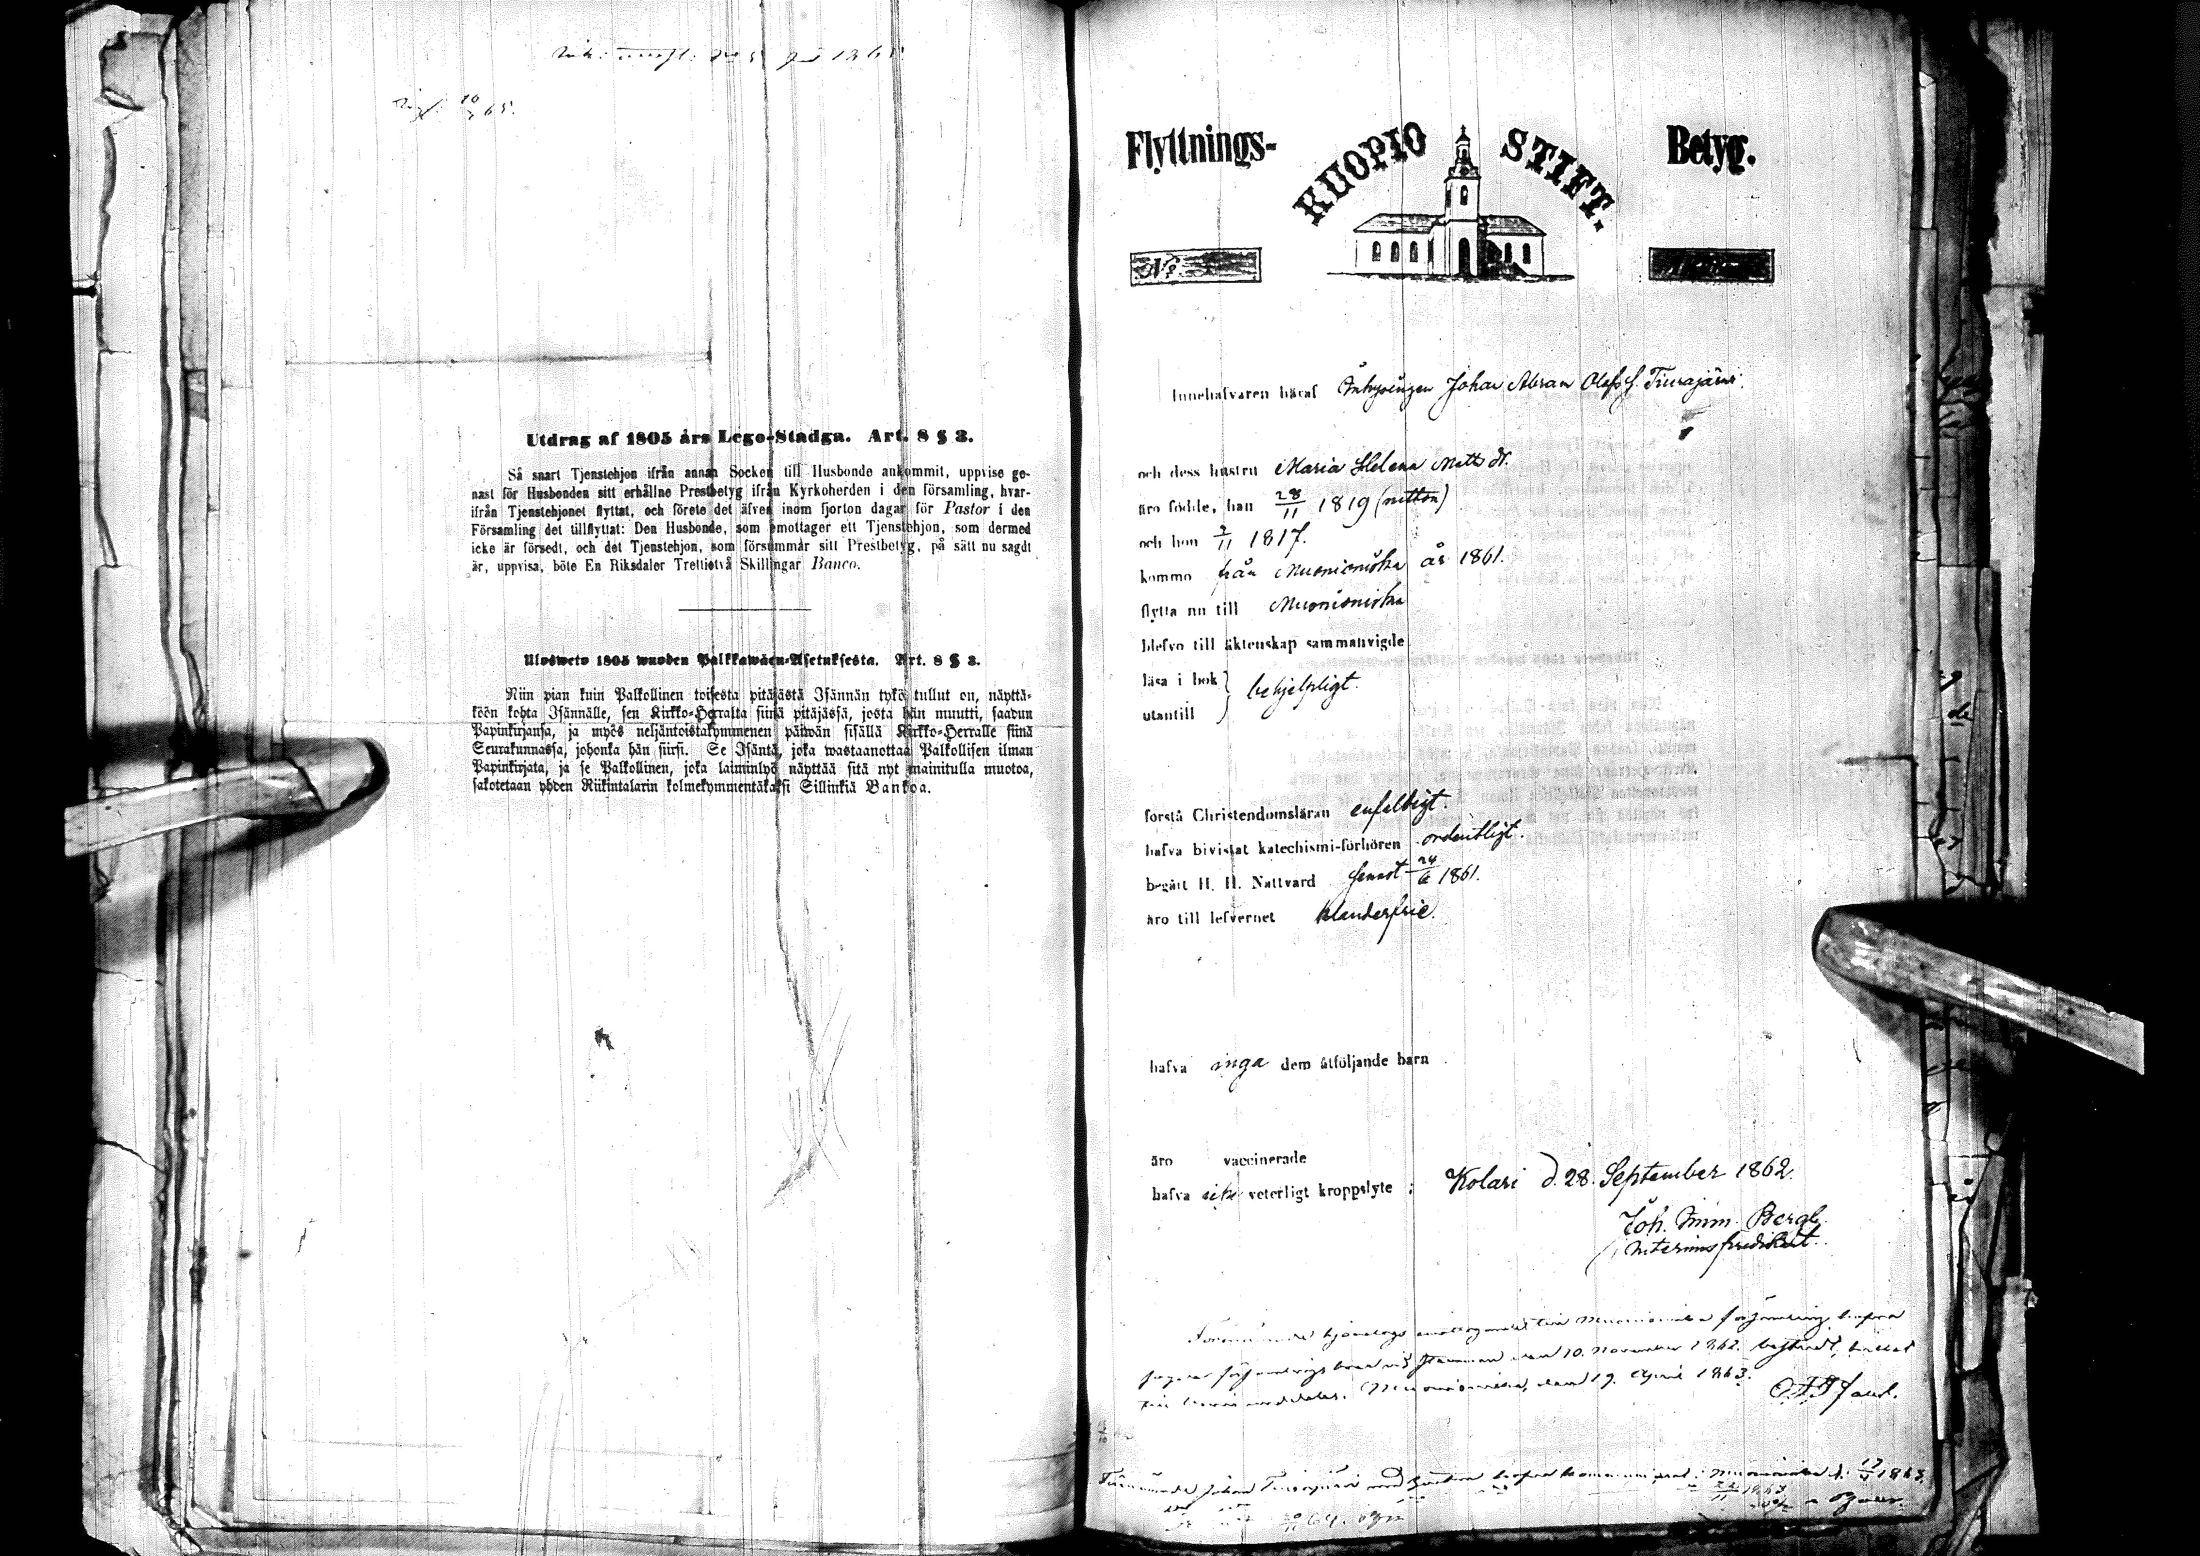 Juni 1865
65.
Utdrag af 1805 års Lego-Stadga. Art. 8 § 3.
Så snart Tjenstehjon ifrån annan Socken till Husbonde ankommit, uppvise ge-
nast för Husbonden sitt erhållne Prestbetyg ifrån Kyrkoherden i den församling, hvar-
ifrån Tjenstehjonet flyttat, och förete det äfven inom fjorton dagar för Pastor i den
Församling det tillflyttat: Den Husbonde, som emottager ett Tjenstehjon, som dermed
icke är försedt, och det Tjenstehjon, som försummar sitt Prestbetyg, på sätt nu sagdt
är, uppvisa, böte En Riksdaler Trettiotvå Skillingar Banco.
Ulosweto 1805 wuoden Palkkawäen-Asetuksesta. Art. 8 § 3.
Niin pian kuin Palkollinen toisesta pitäjästä Isännän tykö tullut on, näyttä-
köön kohta Isännälle, sen Kirkko-Herralta siinä pitäjässä, josta hän muutti, saadun
Papinkirjansa, ja myös neljäntoistakymmenen päiwän sisällä Kirkko-Herralle siinä
Seurakunnassa, johonka hän siirsi. Se Isäntä, joka wastaanottaa Palkollisen ilman
Papinkirjata, ja se Palkollinen, joka laiminlyö näyttää sitä nyt mainitulla muotoa,
sakotetaan yhden Riikintalarin kolmekymmentäkaksi Sillinkiä Bankoa.
Flyttnings- KUOPIO STIFT. Betyg.
N:o
Innehafvaren häraf Inhysingen Johan Abram Olofss. Tiurajärvi.
och dess hustru Maria Helena Matts dr.
äro födde, han 28/11 1819 (nitton)
och hon 2/11 1817.
kommo från Muonioniska år 1861.
flytta nu till Muonioniska
blefvo till äktenskap sammanvigde
läsa i bok } behjelpligt.
utantill
förstå Christendomsläran enfaldigt.
hafva bivistat katechismi-förhören ordentligt.
begått H. H. Nattvard senast 24/6 1861.
äro till lefvernet klanderfrie.
hafva inga dem åtföljande barn
äro vaccinerade
hafva icke veterligt kroppslyte : Kolari d. 28. September 1862.
Joh. Imm. Bergh
Interims predikant.
emottagandet uti Muonioniska församling
den 10. November 1862
Muonioniska, den 19. April 1863.
Johan Tiurajärvi med hustru Muonioniska d. 1863
64.